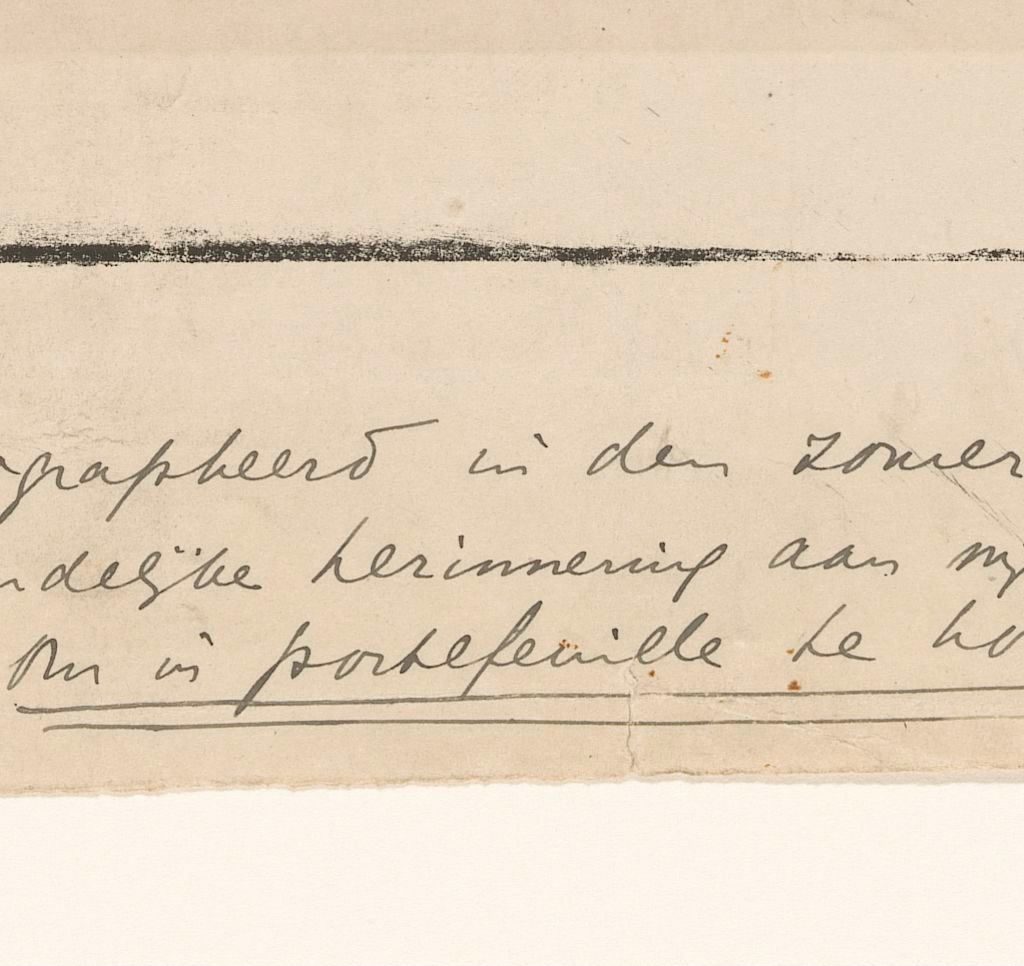 grapheerd in den zomer
ndelijke herinnering aan mij
Om in portefeuille te ho